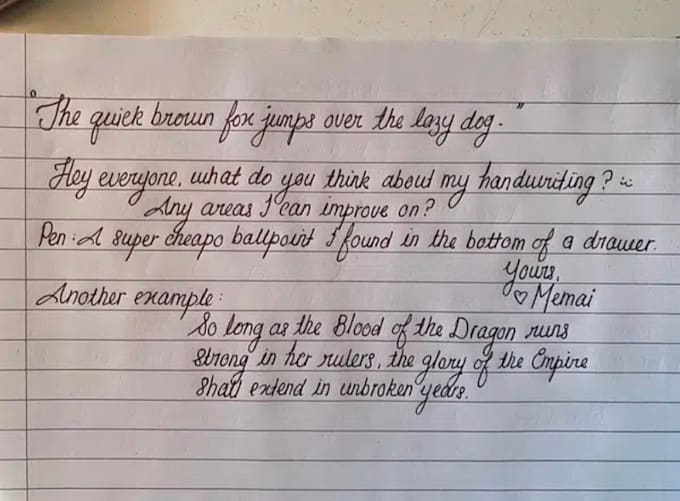 "The quick brown fox jumps over the lazy dog."
Hey everyone, what do you think about my handwriting? :)
Any areas I can improve on?
Pen: A super cheapo ballpoint I found in the bottom of a drawer.
Yours,
♡ Memai
Another example:
So long as the Blood of the Dragon runs
strong in her rulers, the glory of the Empire
shall extend in unbroken years.